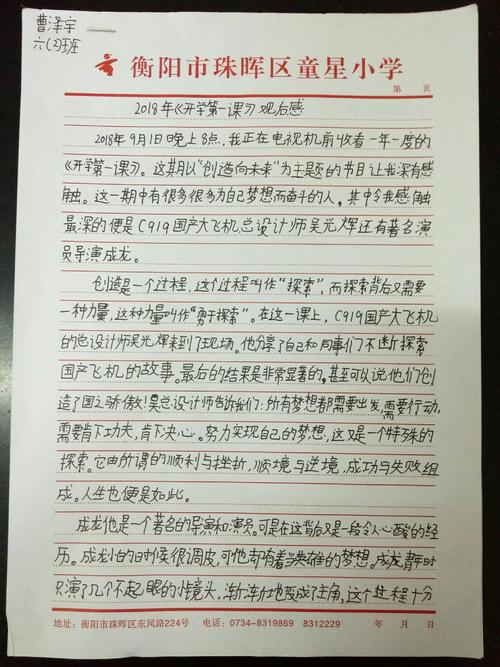 曹泽宇
六(2)班
衡阳市珠晖区童星小学
第 页
2018年《开学第一课》观后感
2018年9月1日晚上8点,我正在电视机前收看一年一度的
《开学第一课》。这期以“创造向未来”为主题的节目让我深有感
触。这一期中有很多很多为自己梦想而奋斗的人,其中令我感触
最深的便是C919国产大飞机总设计师吴光辉还有著名演
员导演成龙。
创造是一个过程,这个过程叫作“探索”,而探索背后又需要
一种力量,这种力量叫作“勇于探索”。在这一课上,C919国产大飞机
的总设计师吴光辉来到了现场。他分享了自己和同事们不断探索
国产飞机的故事。最后的结果是非常显著的,甚至可以说他们创
造了国之骄傲!吴总设计师告诉我们:所有梦想都需要出发,需要行动,
需要肯下功夫,肯下决心。努力实现自己的梦想,这又是一个特殊的
探索。它由所谓的顺利与挫折,顺境与逆境,成功与失败组
成。人生也便是如此。
成龙他是一个著名的导演和演员。可是在这背后又是一段令人心酸的经
历。成龙小的时候很调皮,可他却有着当英雄的梦想。成龙青年时
只演了几个不起眼的小镜头,渐渐地变成了主角,这个过程十分
地址:衡阳市珠晖区东风路224号 电话:0734-8319869 8312229 年 月 日